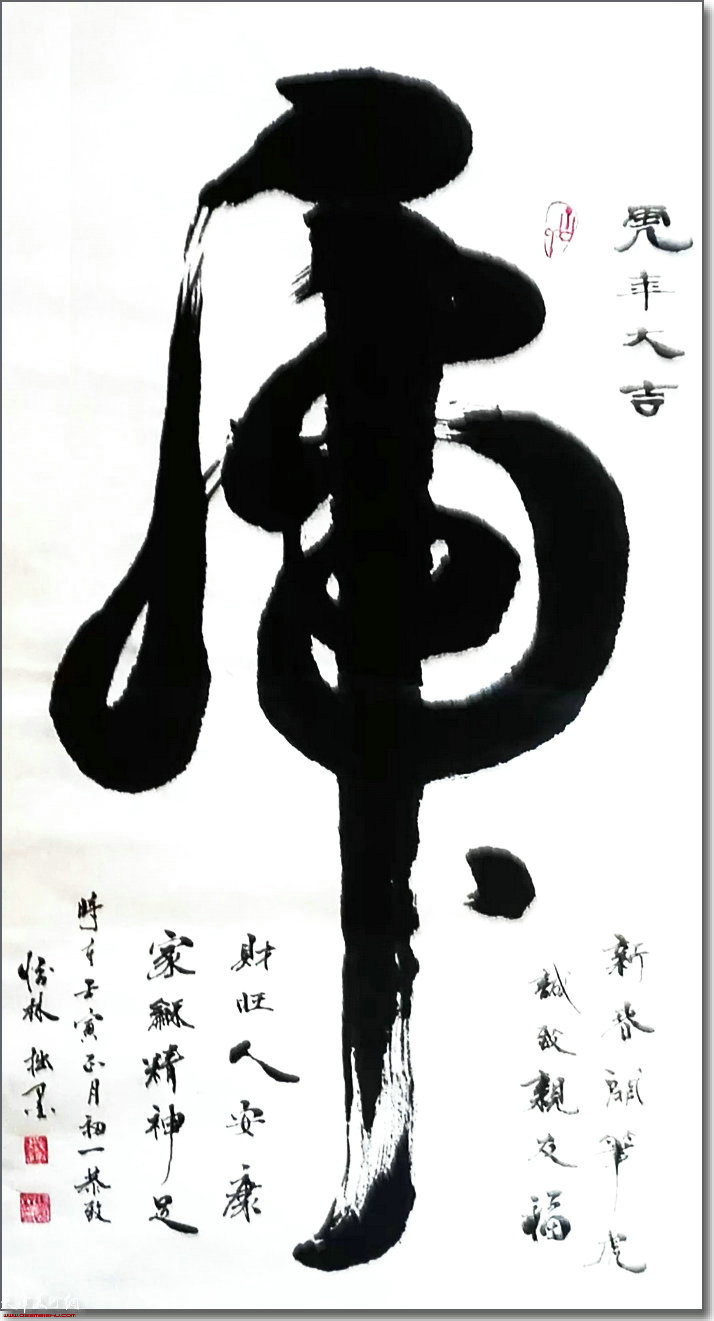 虎
虎年大吉
新春開筆虎
誠致親友福
財旺人安康
家龢精神足
時在壬寅正月初一恭致
林拙墨